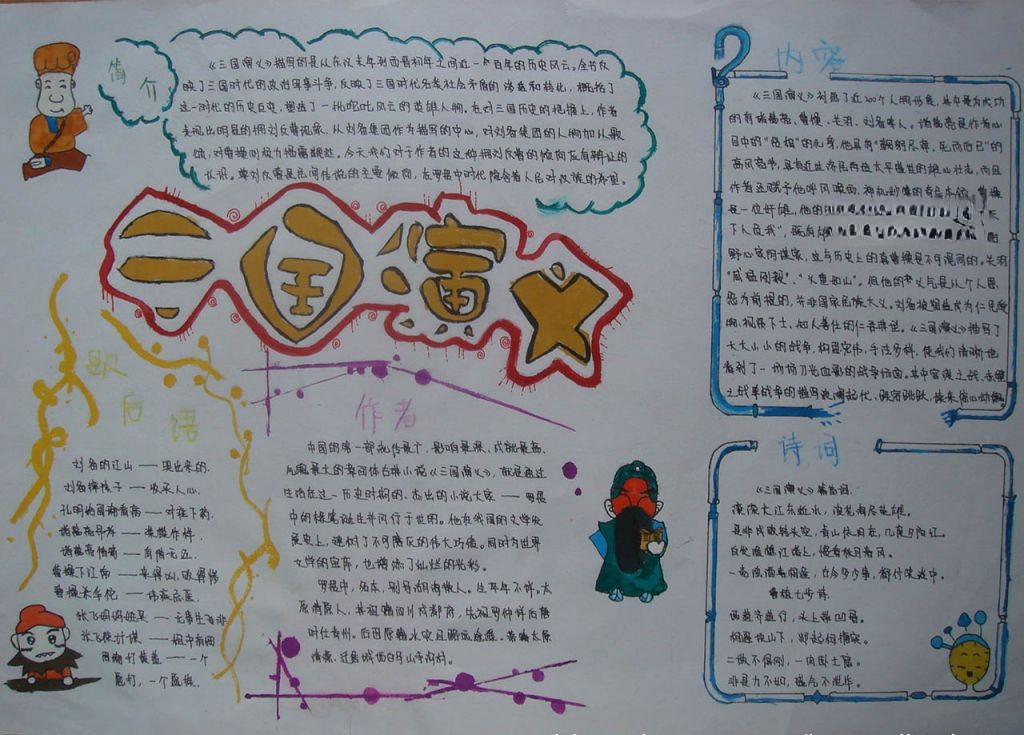 简介
《三国演义》描写的是从东汉末年到西晋初年之间近一百年的历史风云。全书反
映了三国时代的政治军事斗争,反映了三国时代各类社会矛盾的渗透和转化,概括了
这一时代的历史巨变,塑造了一批叱咤风云的英雄人物。在对三国历史的把握上,作者
表现出明显的拥刘反曹倾向,以刘备集团作为描写的中心,对刘备集团的人物加以歌
颂,对曹操则极力揭露鞭挞。今天我们对于作者的这种拥刘反曹的倾向应有辩证的
认识。尊刘反曹是民间传说的主要倾向,在罗贯中时代隐含着人民对汉族的希望。
三国演义
内容
《三国演义》刻画了近200个人物形象,其中最为成功
的有诸葛亮、曹操、关羽、刘备等人。诸葛亮是作者心
目中的"贤相"的化身,他具有"鞠躬尽瘁,死而后已"的
高风亮节,具有近世济民再造太平盛世的雄心壮志,而且
作者还赋予他呼风唤雨、神机妙算的奇异本领。曹操
是一位奸雄,他的
下人负我",既有雄
野心家阴谋家,这与历史上的真曹操是不可混同的。关羽
"威猛刚毅"、"义重如山"。但他的义气是从个人恩
怨为前提的,并非国家民族大义。刘备被塑造成为仁民爱
物、礼贤下士、知人善任的仁君典型。《三国演义》描写了
大大小小的战争,构思宏伟,手法多样,使我们清晰地
看到了一场场刀光血影的战争场面。其中官渡之战、赤壁
之战等战争的描写波澜起伏、跌宕跳跃,读来惊心动魄。
歇后语
刘备的江山——哭出来的.
刘备摔孩子——收买人心.
诸葛亮吊孝——装模作样.
曹操下江南——来得凶,败得惨
曹操杀华佗——讳疾忌医.
张飞妈妈姓吴——无事生非
张飞使计谋——粗中有细
周瑜打黄盖——一个
愿打,一个愿挨.
作者
中国的第一部流传最广、影响最深、成就最高、
气魄最大的章回体白话小说《三国演义》,就是通过
生活在这一历史时期的、杰出的小说大家——罗贯
中的锦笔诞生并问行于世的。他在我国的文学发
展史上,建树了不可磨灭的伟大巧绩。同时为世界
文学的宝库,也增添了灿烂的光彩。
罗贯中,名本,别号湖海散人。生卒年不详。太
原清徐人,其祖籍四川成都府,先祖罗仲祥后唐
清源,迁居城西白马山寺沟村。
诗词
《三国演义》篇首词.
滚滚长江东逝水,浪花淘尽英雄。
是非成败转头空,青山依旧在,几度夕阳红。
白发渔樵江渚上,惯看秋月春风。
一壶浊酒喜相逢,古今多少事,都付笑谈中。
曹植七步诗.
两肉齐道行,头上带凹骨。
相遇块山下,郯起相搪突。
二敌不俱刚,一肉卧土窟。
非是力不如,盛气不泄毕。